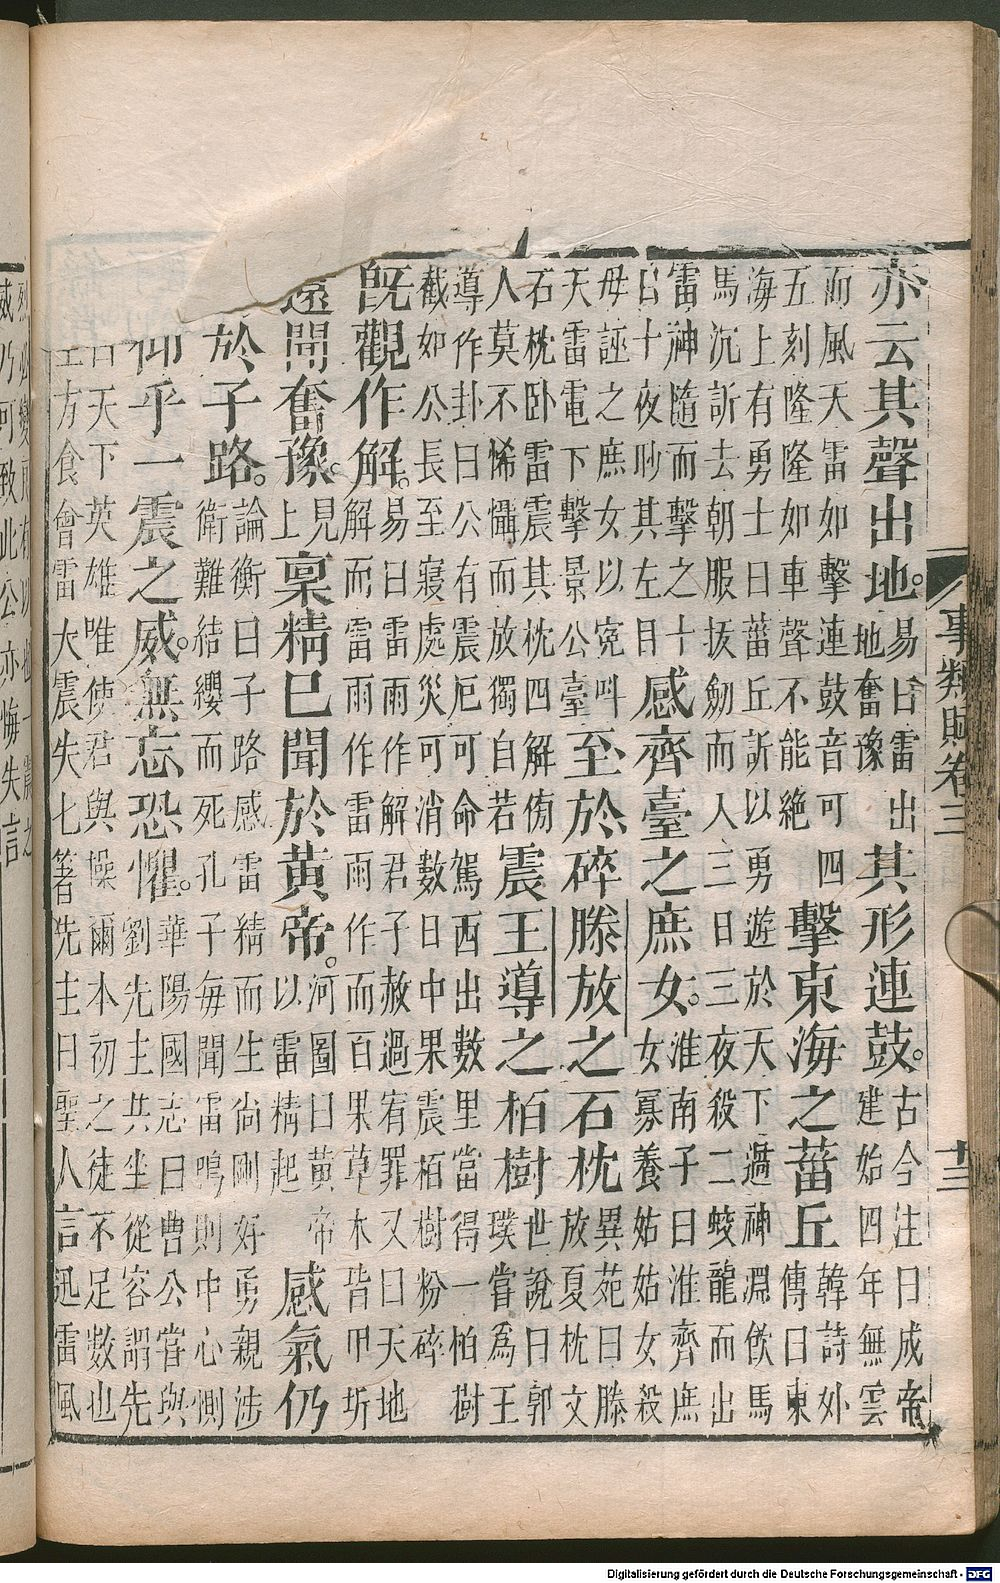 事類賦卷三
十三
亦云其聲出地。易曰雷出
地奮豫
其形連鼓。古今注曰成帝
建始四年無雲
而風天雷如擊連鼓音可四
五刻隆隆如車聲不能絶
擊東海之蓄丘韓詩外
傳曰東
海上有勇士曰蓄丘訢以勇遊於天下過神淵飲馬
馬沉訢去朝服拔劒而入三日三夜殺二蛟龍而出
雷神隨而擊之十
日十夜眇其左目
感齊臺之庶女。淮南子曰淮齊庶
女寡養姑姑女殺
母誣之庶女以寃呌
天雷電下擊景公臺
至於碎滕放之石枕異苑曰滕
放夏枕文
石枕卧雷震其枕四解傍
人莫不悕懾而放獨自若
震王導之柏樹世說曰郭
璞嘗為王
導作卦曰公有震厄可命駕西出數里當得一柏樹
截如公長至寢處災可消數日中果震柏樹粉碎
既觀作解。易曰雷雨作解君子赦過宥罪又曰天地
解而雷雨作雷雨作而百果草木皆甲坼
遠聞奮豫。見
上
稟精已聞於黄帝。河圖曰黄帝
以雷精起
感氣仍
於子路。論衡曰子路感雷精而生尚剛好勇親涉
衛難結纓而死孔子每聞雷鳴則中心惻
仰乎一震之威。無忘恐懼。華陽國志曰曹公嘗與
劉先主共坐從容謂先
曰天下英雄唯使君與操爾本初之徒不足數也
方食會雷大震失七箸先主曰聖人言迅雷風
烈必變良有以也一震之
威乃可致此公亦悔失言
Digitalisierung gefördert durch die Deutsche Forschungsgemeinschaft - DFG